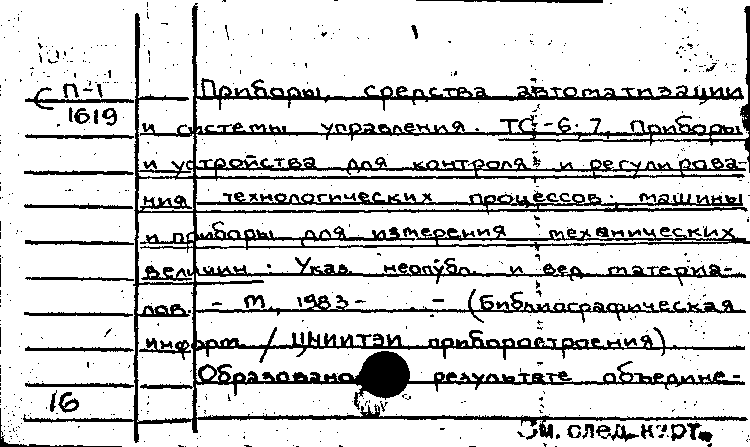 С П-1
1619
Приборы, средства автоматизации
и системы управления. ТС-6,7, Приборы
и устройства для контроля и регулирова-
ния технологических процессов; машины
и приборы для измерения механических
величин : Указ. неопубл. и вед. материа-
лов. - М., 1983- . - (Библиографическая
информ. / ЦНИИТЭИ приборостроения).
Образовано результате объедине-
16
См. след. карт.